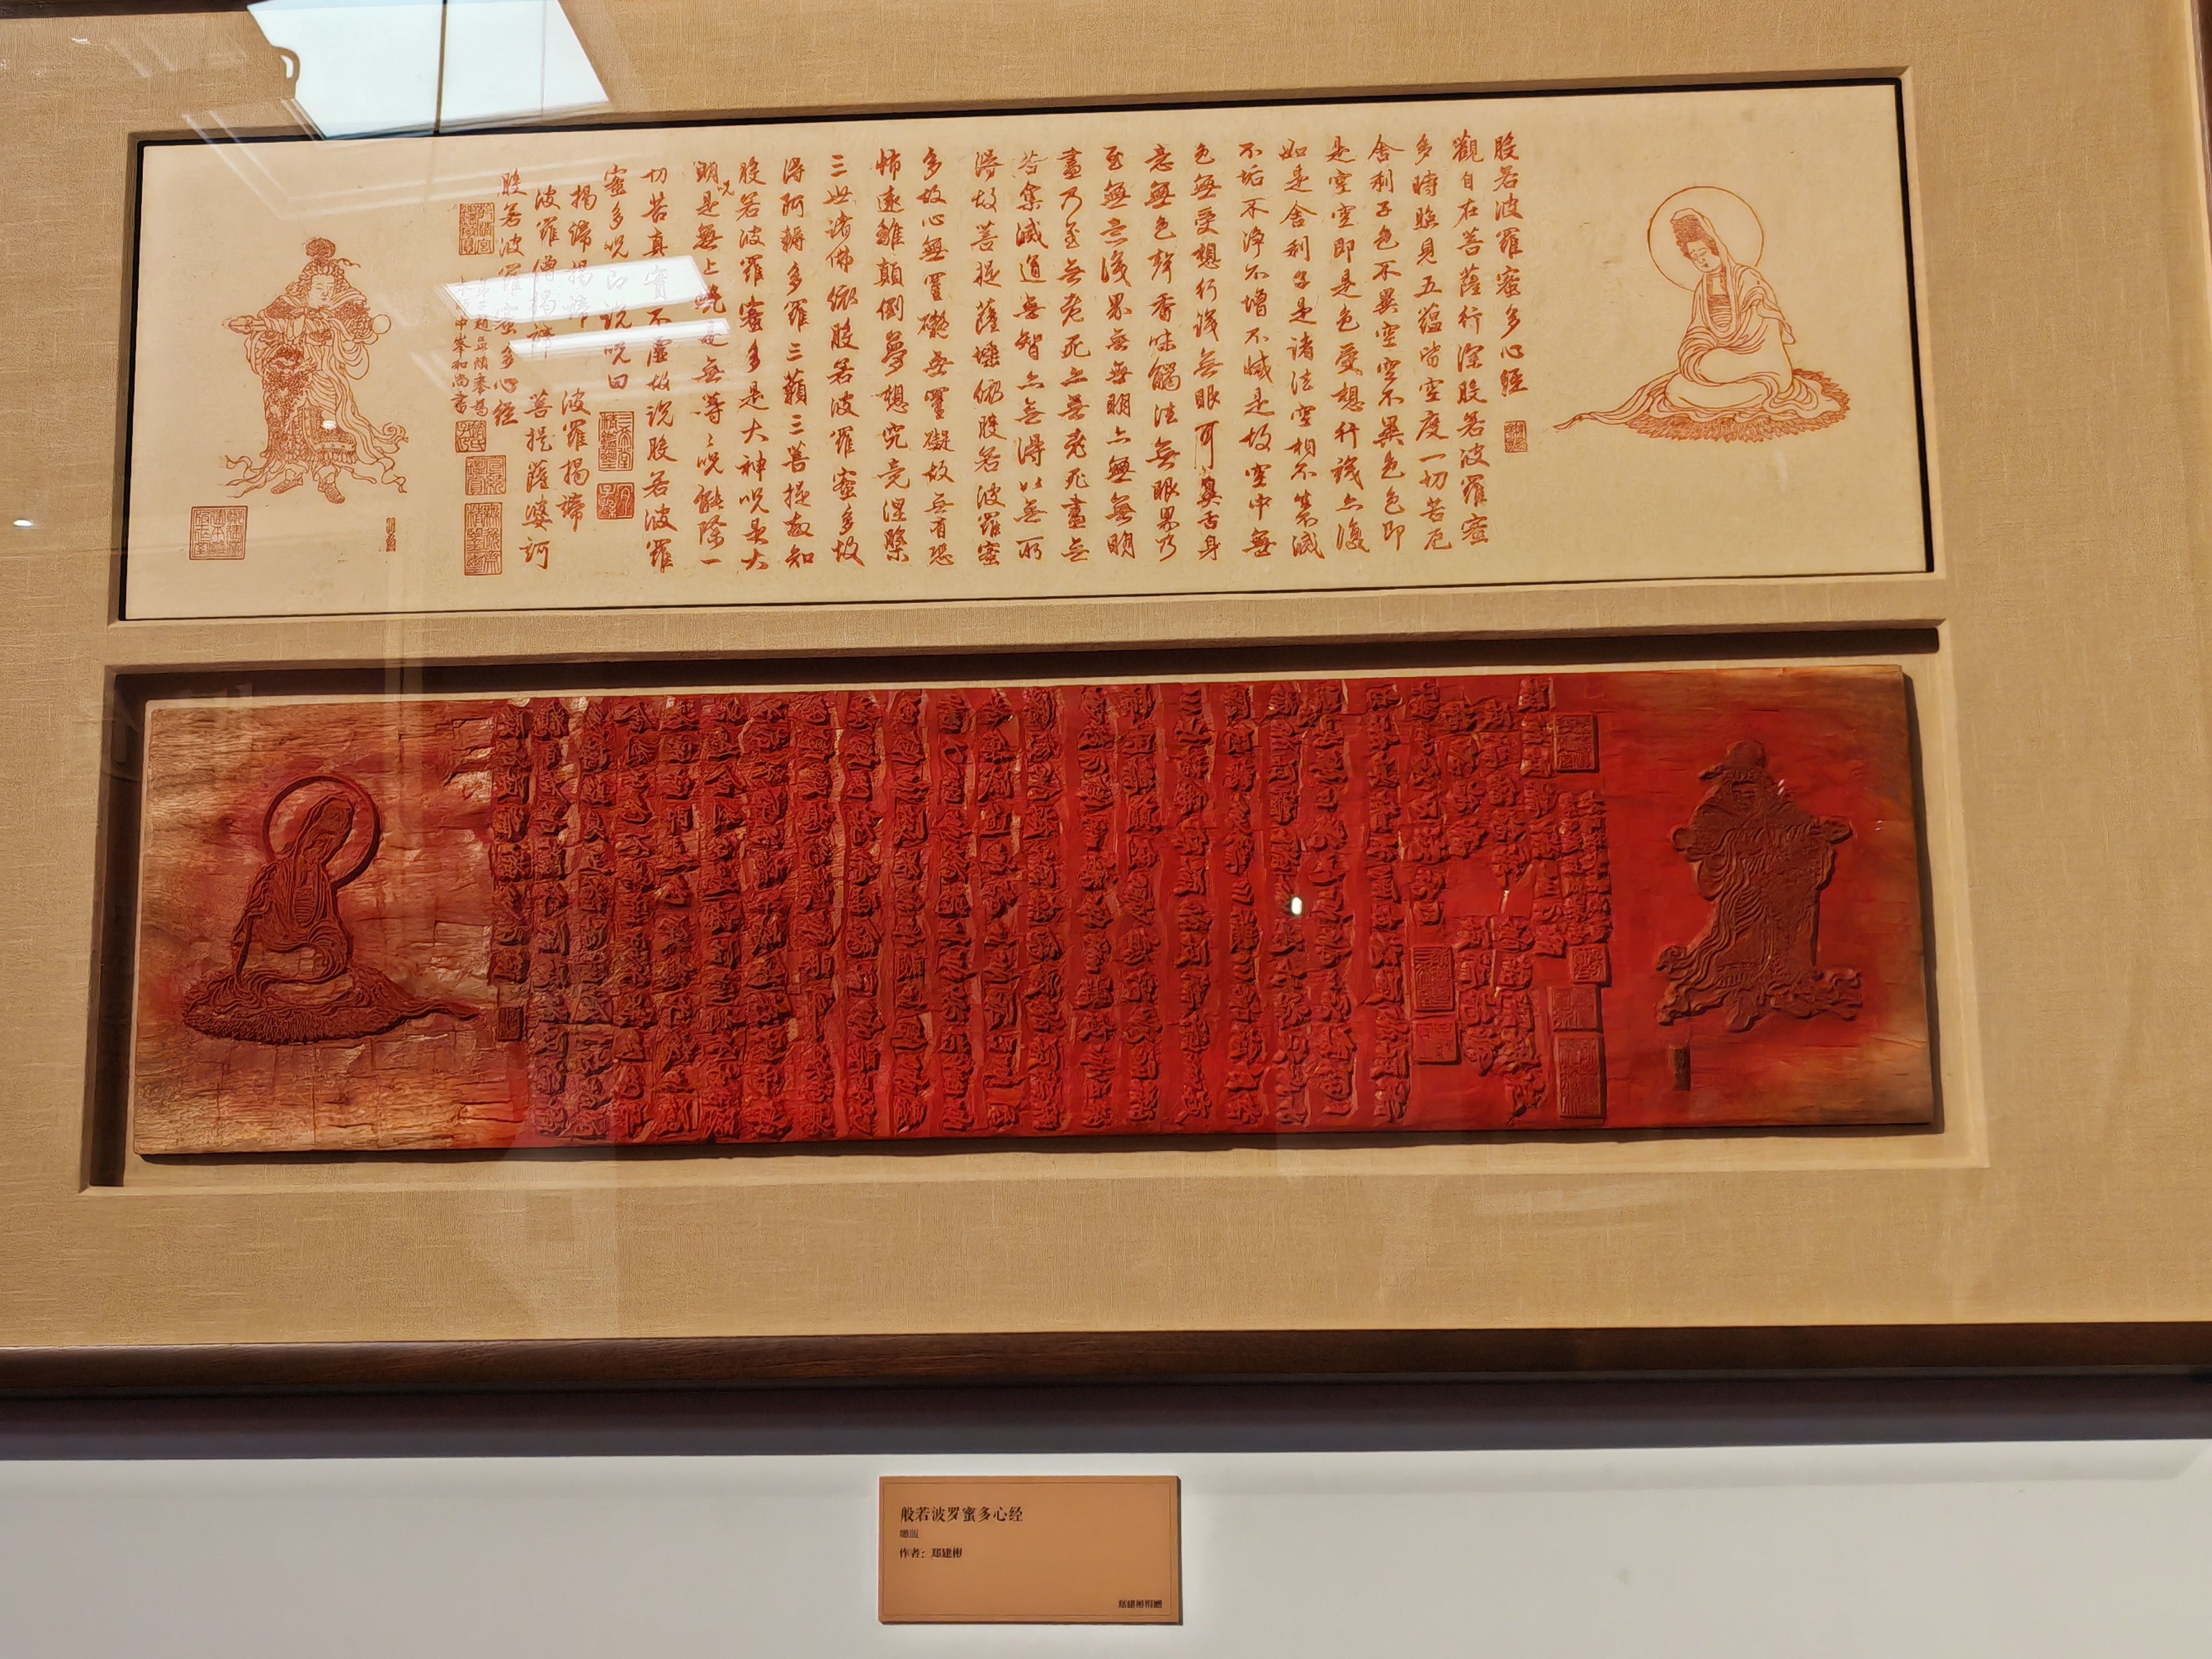 般若波羅蜜多心經
觀自在菩薩行深般若波羅蜜
多時照見五蘊皆空度一切苦厄
舍利子色不異空空不異色色即
是空空即是色受想行識亦復
如是舍利子是諸法空相不生不滅
不垢不淨不增不減是故空中無
色無受想行識無眼耳鼻舌身
意無色聲香味觸法無眼界乃
至無意識界無無明亦無無明
盡乃至無老死亦無老死盡無
苦集滅道無智亦無得以無所
得故菩提薩埵依般若波羅蜜
多故心無罣礙無罣礙故無有恐
怖遠離顛倒夢想究竟涅槃
三世諸佛依般若波羅蜜多故
得阿耨多羅三藐三菩提故知
般若波羅蜜多是大神咒是大
明咒是無上咒是無等等咒能除一
切苦真實不虛故說般若波羅
蜜多咒即說咒曰
揭諦揭諦 波羅揭諦
波羅僧揭諦 菩提薩婆訶
般若波羅蜜多心經
弟子趙孟頫奉為
中峯和尚書
般若波罗蜜多心经
雕版
作者：郑建彬
郑建彬捐赠